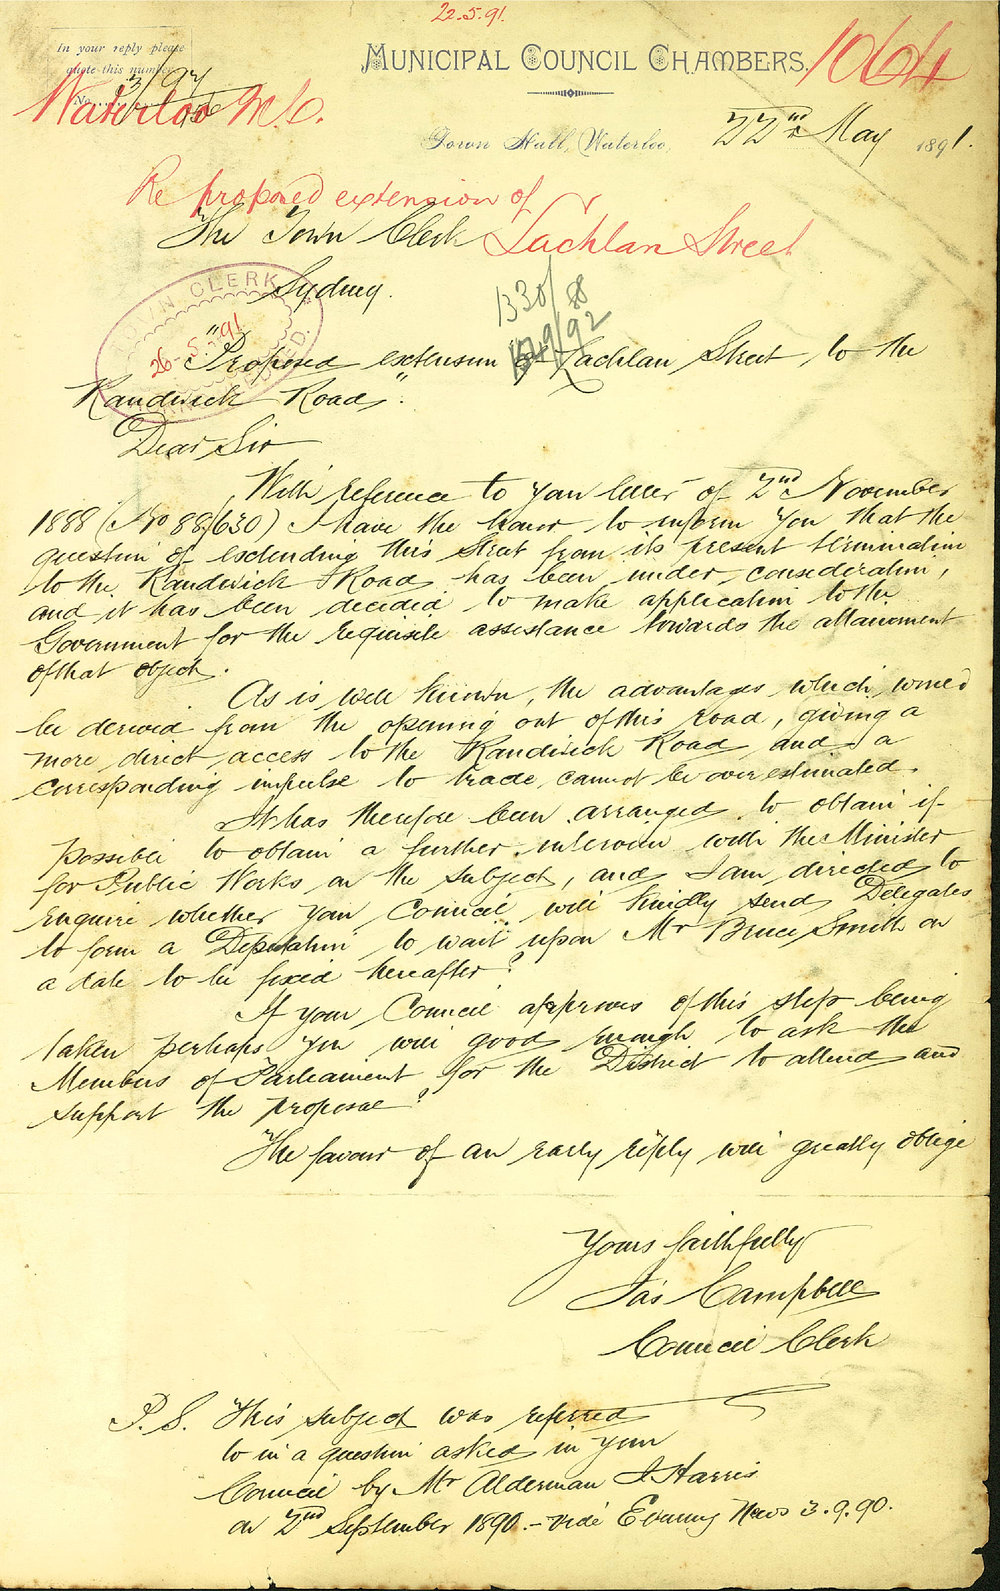 22.5.91.
In your reply please
quote this number
No.
MUNICIPAL COUNCIL CHAMBERS.
1064
Waterloo M.C.
Town Hall, Waterloo,
22nd May 1891.
Re proposed extension of
Lachlan Street
The Town Clerk
Sydney.
TOWN CLERK
26-5-91
1330/88
/92
"Proposed extension of Lachlan Street, to the
Randwick Road."
Dear Sir
With reference to your letter of 2nd November
1888 (No 88/630) I have the honor to inform you that the
question of extending this Street from its present termination
to the Randwick Road has been under consideration,
and it has been decided to make application to the
Government for the requisite assistance towards the attainment
of that object.
As is well known, the advantages which would
be derived from the opening out of this road, giving a
more direct access to the Randwick Road and a
corresponding impulse to trade, cannot be over estimated.
It has therefore been arranged to obtain if
possible to obtain a further interview with the Minister
for Public Works on the subject, and I am directed to
enquire whether your Council will kindly send Delegates
to form a Deputation to wait upon Mr Bruce Smith on
a date to be fixed hereafter?
If your Council approves of this step being
taken perhaps you will good enough to ask the
Members of Parliament for the District to attend and
support the proposal?
The favour of an early reply will greatly oblige
Yours faithfully
Jas Campbell
Council Clerk
P.S. This subject was referred
to in a question asked in your
Council by Mr Alderman J Harris
on 2nd September 1890.- vide Evening News 3.9.90.